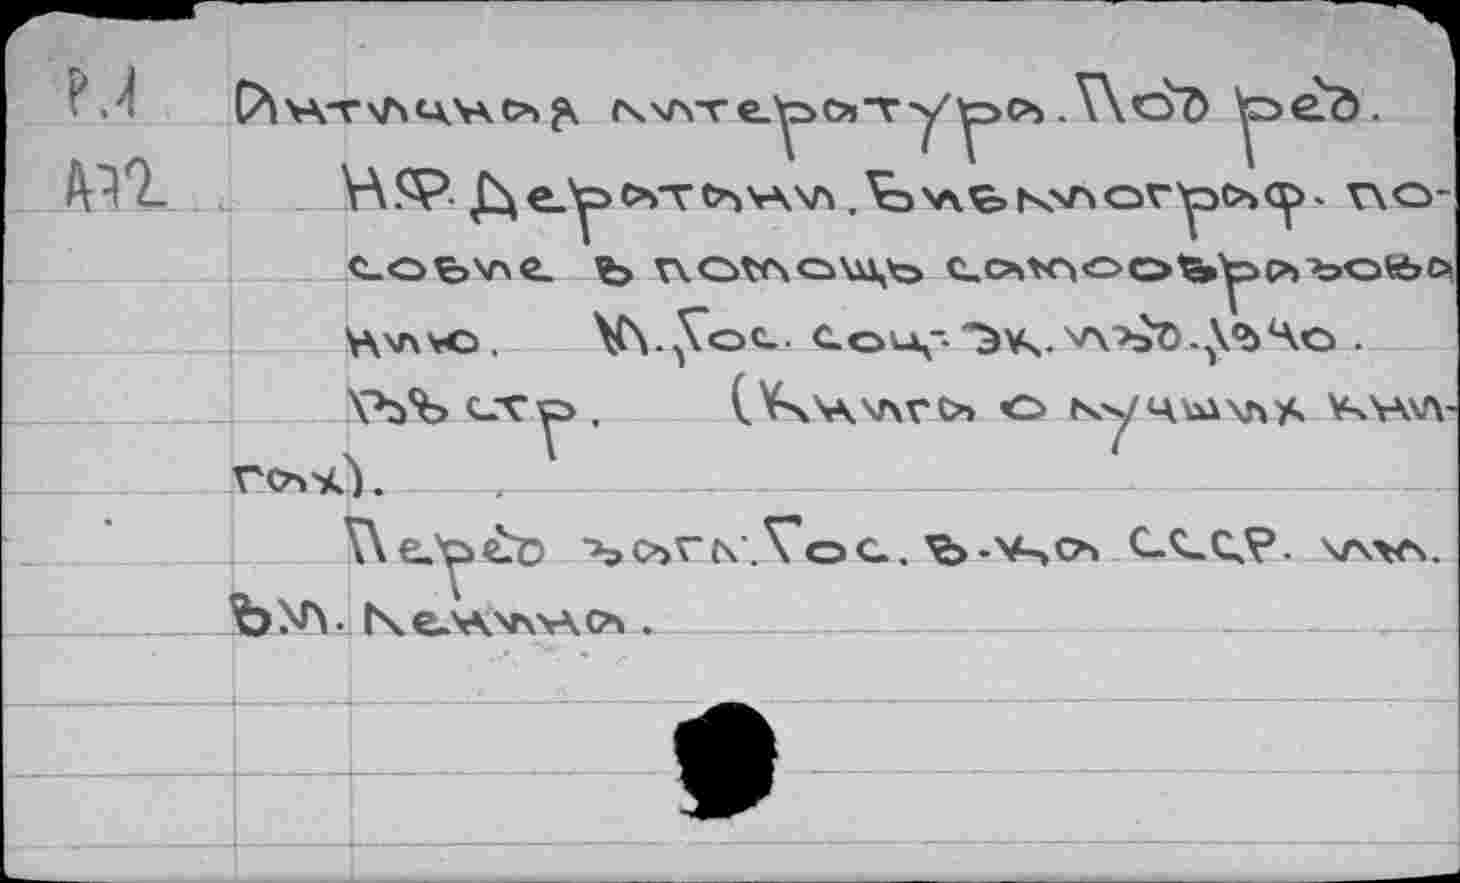 Р.1 Античная литература. Под ред.
А72 Н.Ф. Дератани. Библиограф. по-
собие в помощь самообразова
нию. М. Гос. соц.-эк. изд. 1940.
стр. (Книга о лучших кни-
гах).
Перед загл: Гос. б-ка СССР. им.
В.И. Ленина.